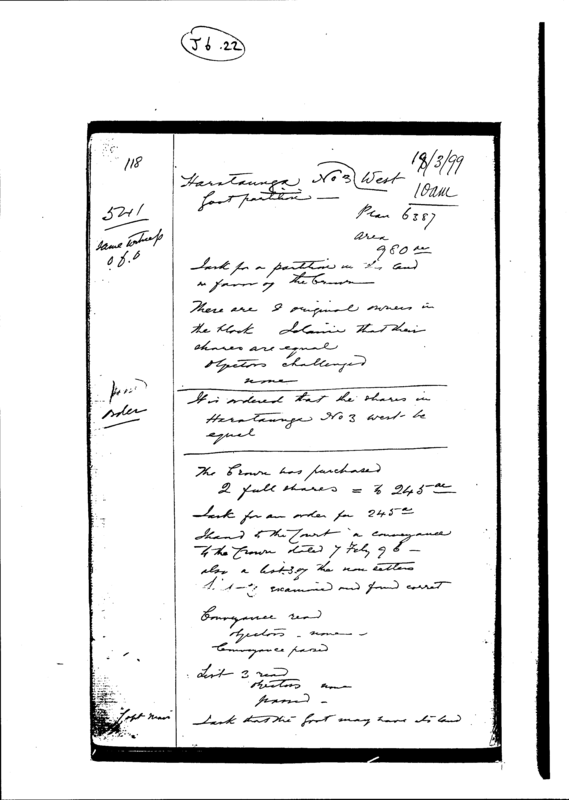 J6.22
118
18/3/99
Harataunga No 3 West
10am
Govt partition —
Plan 6387
541
area
980 ac
same
I ask for a partition in land
in favor of the Crown
There are 8 original owners in
the block I claim that their
shares are equal
Objectors challenged
none
order
It is ordered that the shares in
Harataunga No 3 West be
equal
The Crown has purchased
2 full shares = to 245 ac
I ask for an order for 245 ac
I hand to the Court a conveyance
to the Crown dated 7 Feby 96 —
also a list 3 of the non sellers
examined and found correct
Conveyance read
objectors - none -
Conveyance passed
List 3 read
objectors none
passed -
I ask that the Govt may have its land